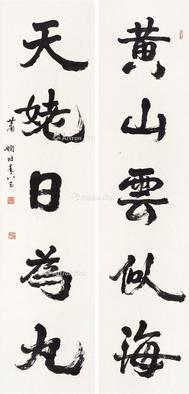 黄山雲似海
天姥日為丸
蕭嫻時年八十